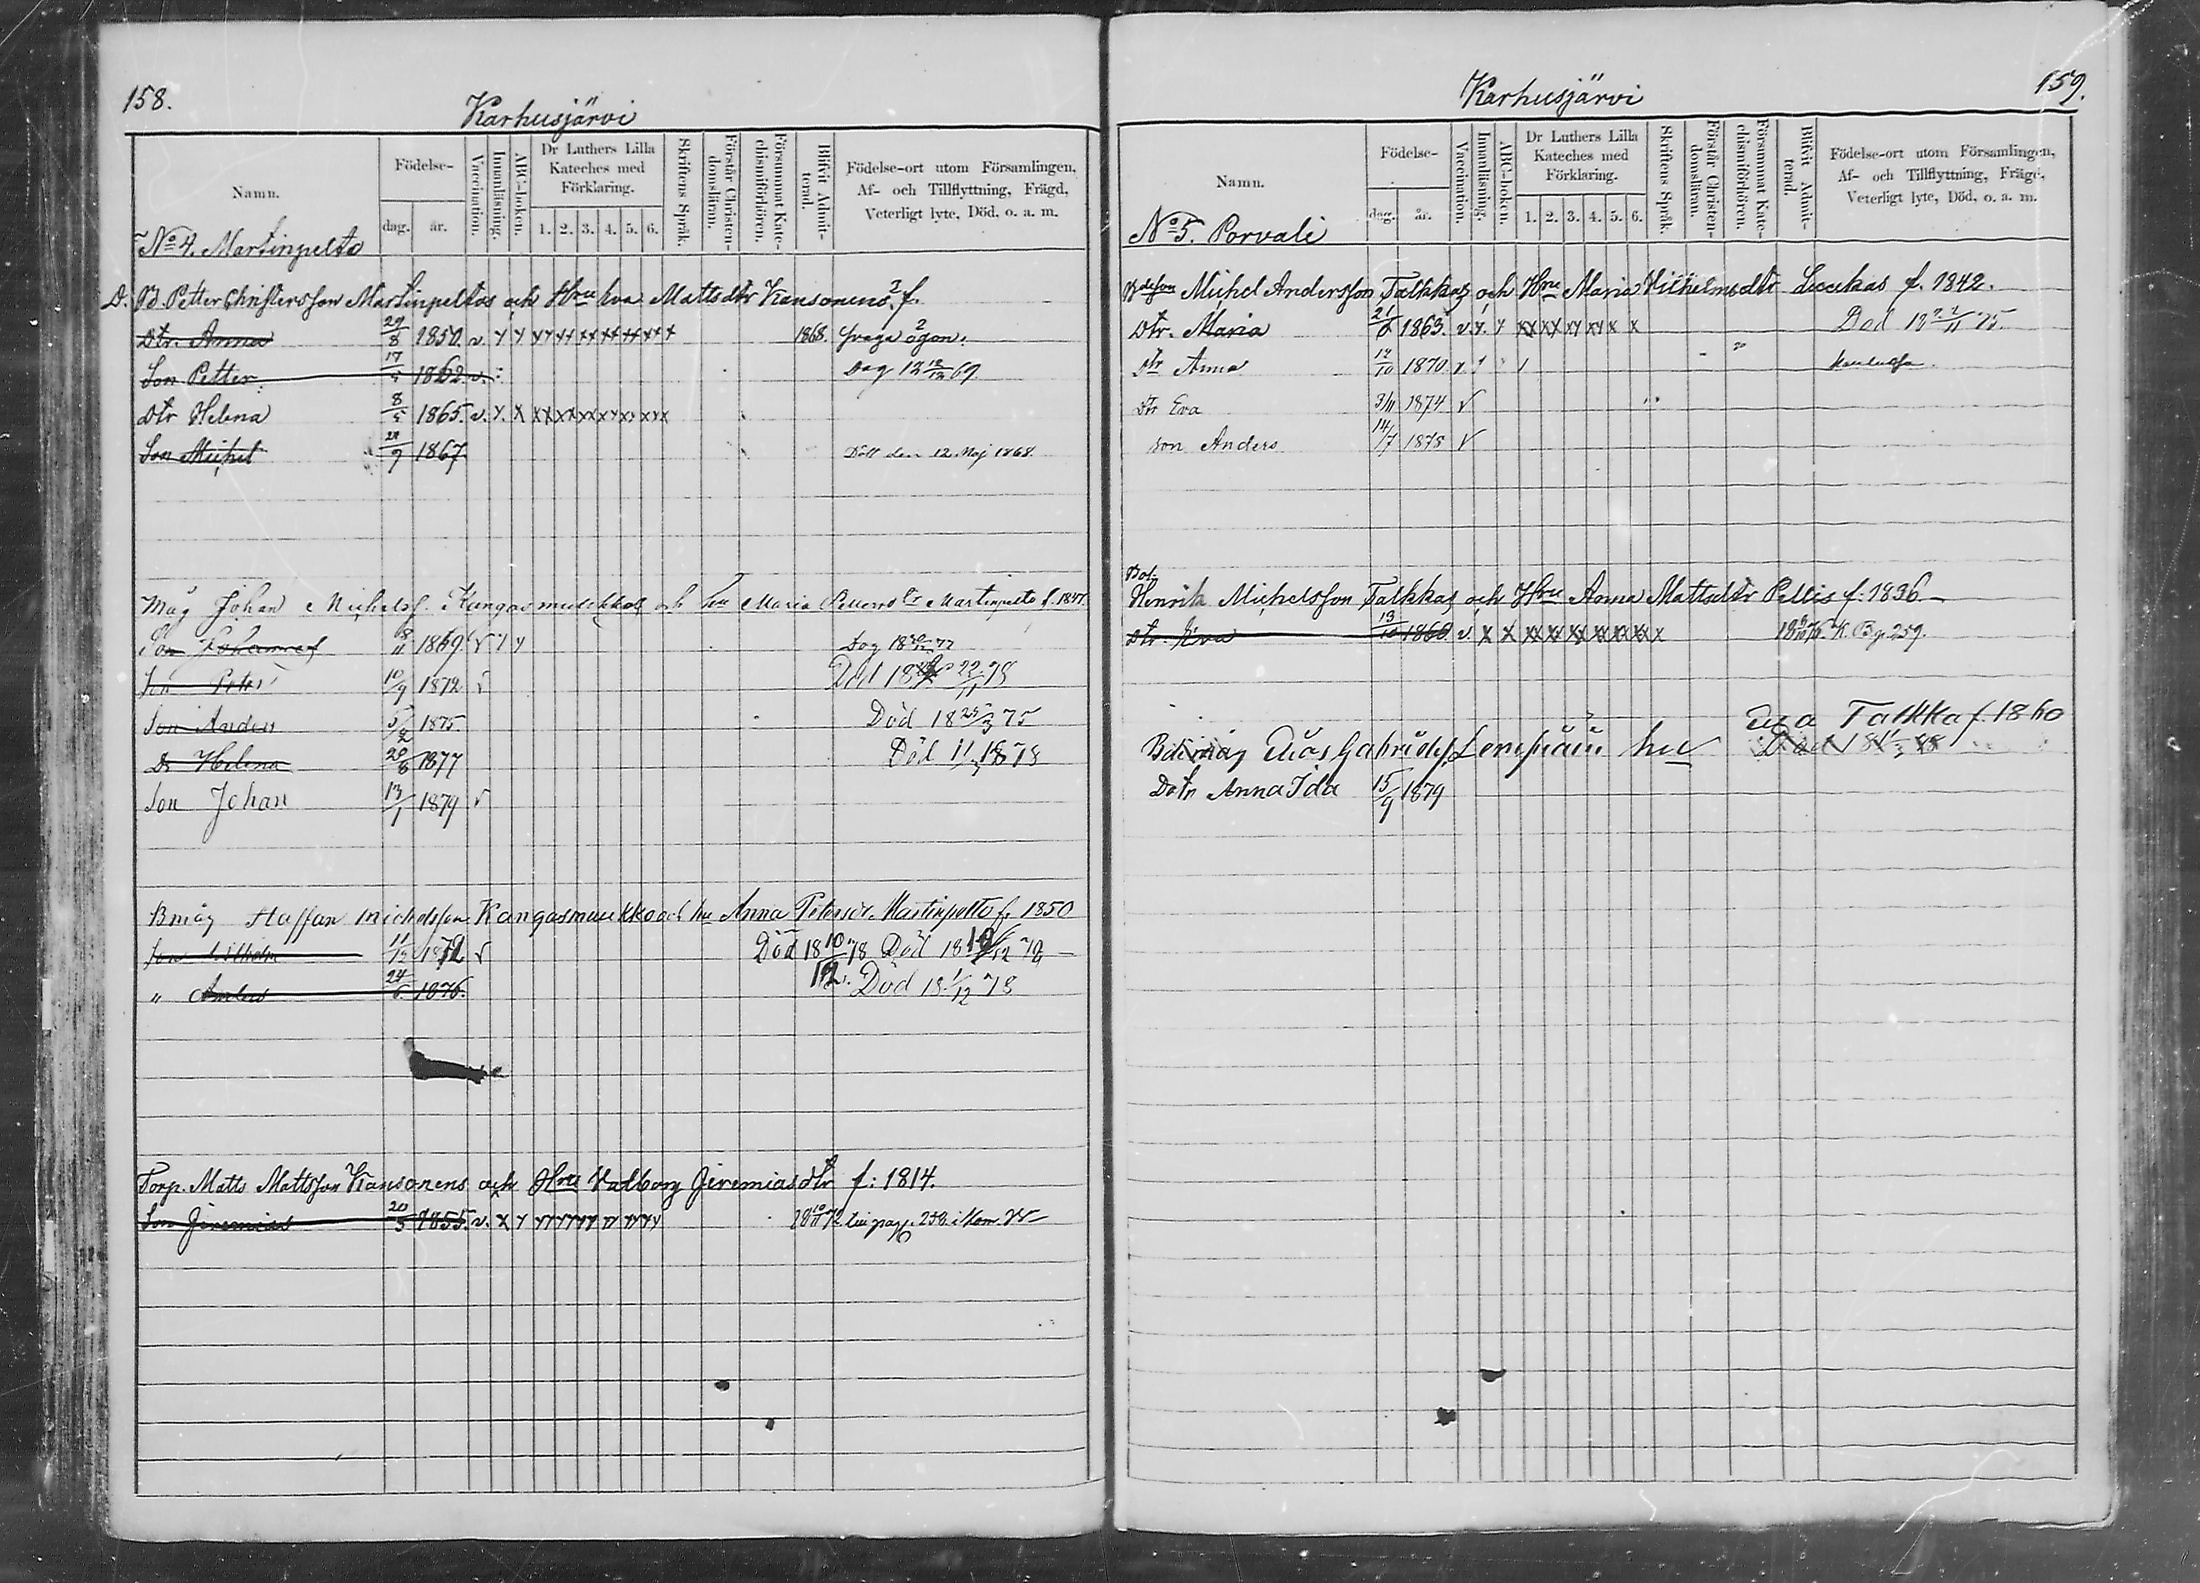 158.
Karhusjärvi
Namn.
Födelse-
dag.
år.
Vaccination.
Innanläsning.
ABC-boken.
Dr Luthers Lilla Kateches med Förklaring.
1. 2. 3. 4. 5. 6.
Skriftens Språk.
Förstår Christendomsläran.
Försummat Katechismiförhören.
Blifvit Admitterad.
Födelse-ort utom Församlingen, Af- och Tillflyttning, Frägd, Veterligt lyte, Död, o. a. m.
No 4. Martinpelto
D. B. Petter Christersson Martinpeltos och Hru Eva Mattsdtr Kansonens f.
Dtr. Anna 29/8 1850. v. 1868. ögon.
Son Petter 17/ 1862. v. Dog 18 12/12 69
Dtr Helena 8/5 1865. v.
Son Michel 1867 Dött den 12 Maj 1868.
Måg Johan Michelss. Kangasmuukkos och hu Maria Martinpelto f. 1847
Son Johannes 8/11 1869. v Dog 18 72
Son Peter 10/9 1872 v Död 18 22/11 78
Son Anders 5/2 1875. Död 18 75
Dr Helena 20/8 1877 Död 11/ 1878
Son Johan 13/1 1879 v
Bmåg Staffan Michelsson Kangasmuukko och hu Anna Petersdr Martinpelto f. 1850
Son Wilhelm 11/ 1872 v Död 18 10/12 78 Död 18 10/12 78
" Anders 24/6 1876. Död 18 1/12 78
Torp. Matts Mattsson Kansonens och Hru Valborg Jeremiasdtr f: 1814.
Son Jeremias 20/5 1855. v. 18 72 pag. 258. i Kom. B
159.
Karhusjärvi
Namn.
Födelse-
dag.
år.
Vaccination.
Innanläsning.
ABC-boken.
Dr Luthers Lilla Kateches med Förklaring.
1. 2. 3. 4. 5. 6.
Skriftens Språk.
Förstår Christendomsläran.
Försummat Katechismiförhören.
Blifvit Admitterad.
Födelse-ort utom Församlingen, Af- och Tillflyttning, Frägd, Veterligt lyte, Död, o. a. m.
No 5. Porvali
Michel Andersson Talkkas och Hru Maria Wilhelmsdtr Luukas f. 1842.
Dtr. Maria 21/6 1863. v. Död 18 22/11 75.
Dtr Anna 12/10 1870.
Dtr Eva 3/11 1874 v
Son Anders 14/7 1878 v
Henrik Michelsson Talkkas och Hru Anna Mattsdtr Pellis f. 1836.
Dtr. Eva 13/10 1860. v. 18 76. K. B. g. 259.
Elias Gabrielss. Lensiäin hu Eva Talkka f. 1860
Dotr Anna Ida 15/9 1879